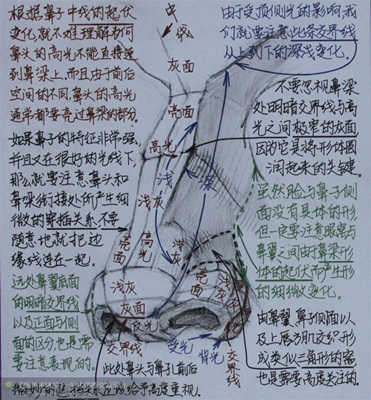 根据鼻子中线的起伏
变化就不难理解为何
鼻头的高光不能直接连
到鼻梁上,而且由于前后
空间的不同鼻头的高光
通常都要亮过鼻梁的部分.
如果鼻子的特征非常强,
并且又在很好的光线下,
那么就要注意鼻头和
鼻梁衔接处所产生细
微的穿插关系.不要
随意也就把边
缘线连在一起.
远处鼻翼底面
的明暗交界线
以及正面与侧
面的区分也是需
要注意表现的.
中线
灰面
亮面
高光
浅灰
亮面
高光
浅
深
浅灰
浅灰
灰面
反光
交界线
亮面
浅灰
受光
背光
交界线
此处鼻头与鼻子前后
由于受顶侧光的影响,我
们就要注意此条交界线
从上到下的深浅变化.
不要忽视鼻梁
处明暗交界线与高
光之间极窄的灰面
因为它是将形体圆
润起来的关键.
虽然脸与鼻子侧
面没有具体的形
但一定要注意眼窝与
鼻翼之间由于鼻梁形
体的起伏而产生形
的细微变化.
由鼻翼鼻子侧面以
及上唇方肌交织形
成类似三角形的窝
也是需要高度关注的.